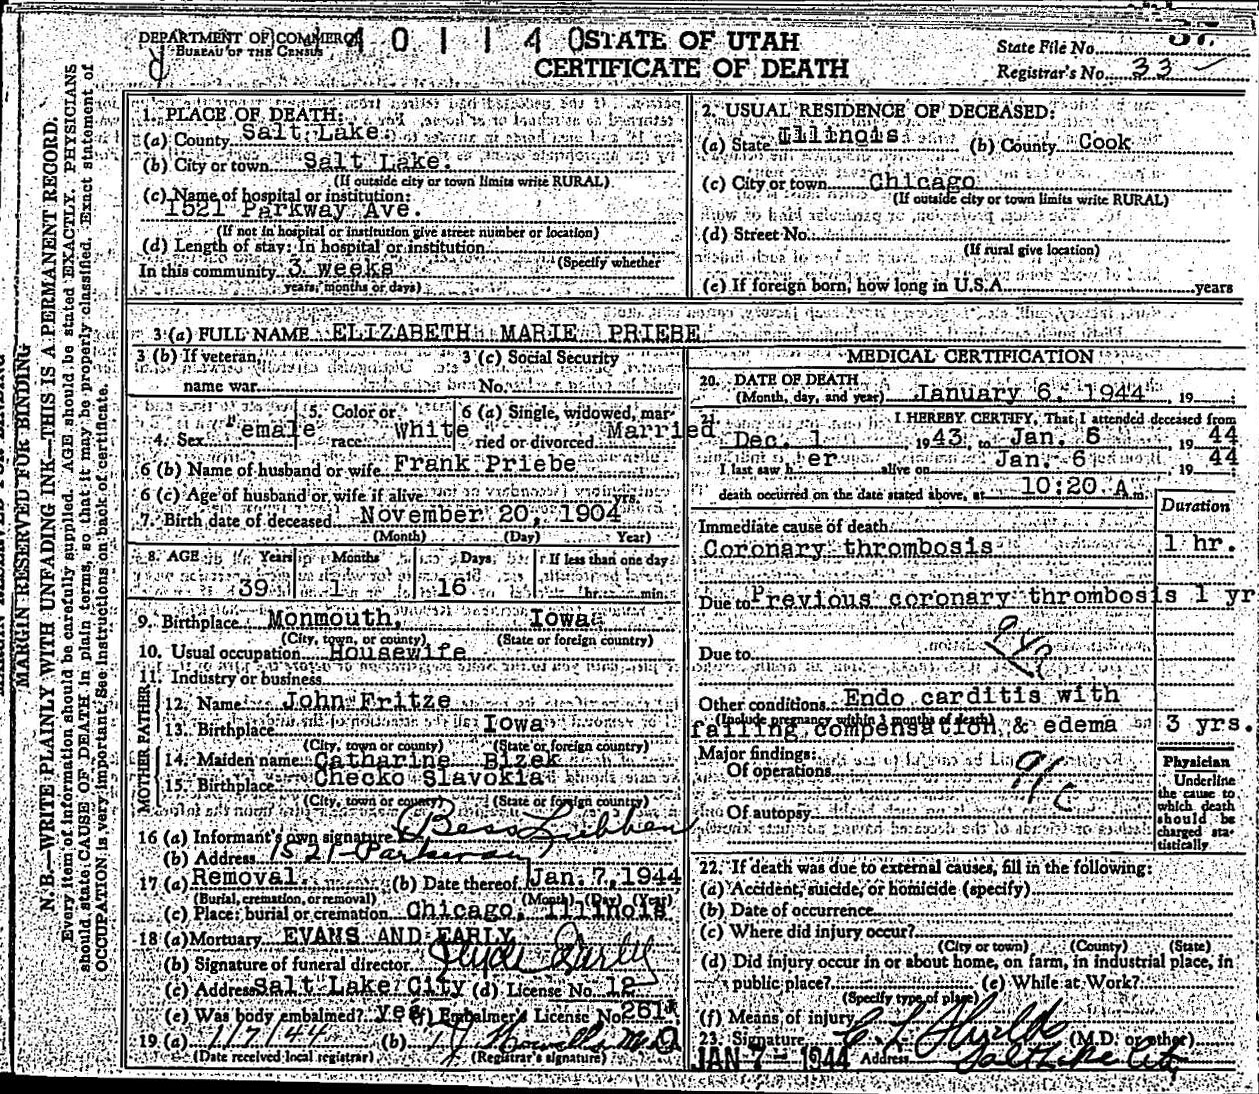 DEPARTMENT OF COMMERCE
BUREAU OF THE CENSUS
401140
STATE OF UTAH
CERTIFICATE OF DEATH
State File No.
Registrar's No. 33
MARGIN RESERVED FOR BINDING
N. B.—WRITE PLAINLY WITH UNFADING INK—THIS IS A PERMANENT RECORD.
Every item of information should be carefully supplied. AGE should be stated EXACTLY. PHYSICIANS
should state CAUSE OF DEATH in plain terms, so that it may be properly classified. Exact statement of
OCCUPATION is very important. See Instructions on back of certificate.
1. PLACE OF DEATH:
(a) County Salt Lake.
(b) City or town Salt Lake.
(If outside city or town limits write RURAL)
(c) Name of hospital or institution:
1521 Parkway Ave.
(If not in hospital or institution give street number or location)
(d) Length of stay: In hospital or institution
(Specify whether
In this community 3 weeks
years, months or days)
2. USUAL RESIDENCE OF DECEASED:
(a) State Illinois (b) County Cook
(c) City or town Chicago
(If outside city or town limits write RURAL)
(d) Street No.
(If rural give location)
(e) If foreign born, how long in U.S.A. years
3 (a) FULL NAME ELIZABETH MARIE PRIEBE
3 (b) If veteran, name war
3 (c) Social Security No.
4. Sex Female
5. Color or race White
6 (a) Single, widowed, married or divorced Married
6 (b) Name of husband or wife Frank Priebe
6 (c) Age of husband or wife if alive yrs.
7. Birth date of deceased November 20, 1904
(Month) (Day) Year)
8. AGE Years Months Days If less than one day
39 1 16 hr. min.
9. Birthplace Monmouth, Iowa
(City, town, or county) (State or foreign country)
10. Usual occupation Housewife
11. Industry or business
FATHER
12. Name John Fritze
13. Birthplace Iowa
(City, town or county) (State or foreign country)
MOTHER
14. Maiden name Catharine Bizek
15. Birthplace Checko Slavokia
(City, town or county) (State or foreign country)
16 (a) Informant's own signature Bess Lubben
(b) Address 1521 Parkway
17 (a) Removal. (b) Date thereof Jan. 7, 1944
(Burial, cremation, or removal) (Month) (Day) (Year)
(c) Place: burial or cremation Chicago, Illinois
18 (a) Mortuary EVANS AND EARLY
(b) Signature of funeral director Clyde Early
(c) Address Salt Lake City (d) License No. 12
(e) Was body embalmed? yes (f) Embalmer's License No. 261
19 (a) 1/7/44 (b) M.D.
(Date received local registrar) (Registrar's signature)
MEDICAL CERTIFICATION
20. DATE OF DEATH
(Month, day, and year) January 6, 1944, 19
21. I HEREBY CERTIFY, That I attended deceased from
Dec. 1, 1943, to Jan. 6, 1944
I last saw her alive on Jan. 6, 1944
death occurred on the date stated above, at 10:20 A.m.
Duration
Immediate cause of death
Coronary thrombosis 1 hr.
Due to Previous coronary thrombosis 1 yr
Due to
Other conditions Endo carditis with
(Include pregnancy within 3 months of death)
failing compensation & edema 3 yrs.
Major findings:
Of operations
Of autopsy
Physician
Underline
the cause to
which death
should be
charged sta-
tistically
22. If death was due to external causes, fill in the following:
(a) Accident, suicide, or homicide (specify)
(b) Date of occurrence
(c) Where did injury occur?
(City or town) (County) (State)
(d) Did injury occur in or about home, on farm, in industrial place, in
public place? (e) While at Work?
(Specify type of place)
(f) Means of injury
23. Signature C L Shields (M.D. or other)
JAN 7 - 1944 Address Salt Lake City